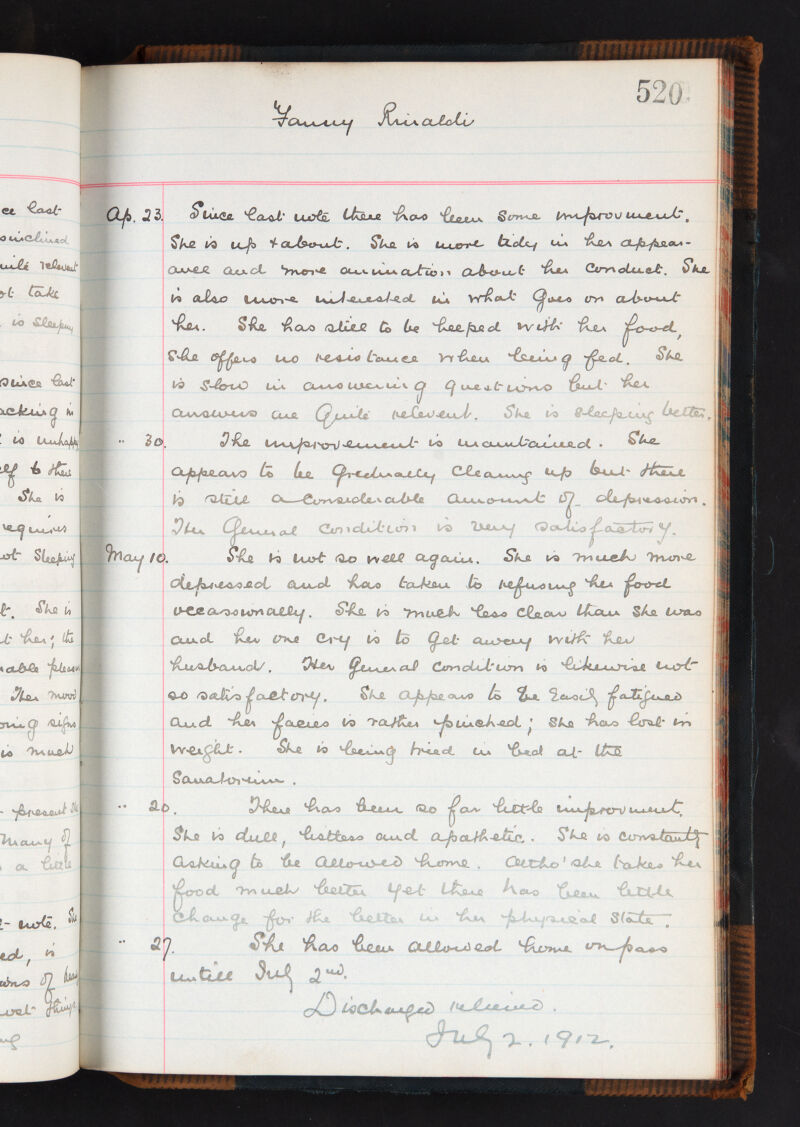 ce last
sinclined
uite relevent
ot take
is sleeping
since last
acking in
is unhappy
elf & then
She is
requires
ot sleeping
t. She is
t her; the
able pleasu
Her mood
oing signs
is much
present
many of
a little
note. She
ed, is
ons of
wet things
ng
520
Fanny Rinaldi
Ap. 23. Since last note there has been some improvument.
She is up & about. She is more tidy in her appear-
ance and more animation about her conduct. She
is also more interested in what Goes on about
her. She has still to be heeped with her food,
She offers no resistance when being fed. She
is slow in answering questions but her
answers are Quite relevent. She is sleeping better.
" 30. The improvement is maintained. She
appears to be Gredually clearing up but there
is still a considerable amount of depression.
Her General condition is very satisfactory.
May 10. She is not so well again. She is much more
depressed and has taken to refusing her food
occassionally. She is much less clear than she was
and her one cry is to Get away with her
husband. Her General condition is likewise not
so satisfactory. She appears to be Easily fatigued
and her facies is rather pinched; she has lost in
weight. She is being tried in bed at the
Sanatorium.
" 20. There has been so far little improvument.
She is dull, listless and apathetic. She is constantly
asking to be allowed home. Altho' she takes her
food much better yet there has been little
change for the better in her physical state.
" 27. She has been allowed home on pass
untill July 2nd.
Discharged relieved.
July 2. 1912.